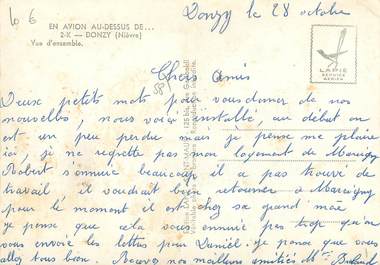 10 €
Donzy le 28 octobre
EN AVION AU-DESSUS DE...
2-K — DONZY (Nièvre)
Vue d'ensemble.
LAPIE
SERVICE
AERIEN
Chers amis
Deux petits mots pour vous donner de nos
nouvelles, nous voici installé, au début on
est un peu perdue mais je pense me plaire
ici, je ne regrette pas mon logement de Marcigny
Robert s'ennuie beaucoup il a pas trouvé de
travail il voudrait bien retourner a Marcigny
pour le moment il est chez sa grand mère
je pense que cela vous ennuie pas trop qu'on
vous envoie les lettres pour Daniel. je pense que vous
allez tous bien. Recevez nos meilleures amitiés Mme